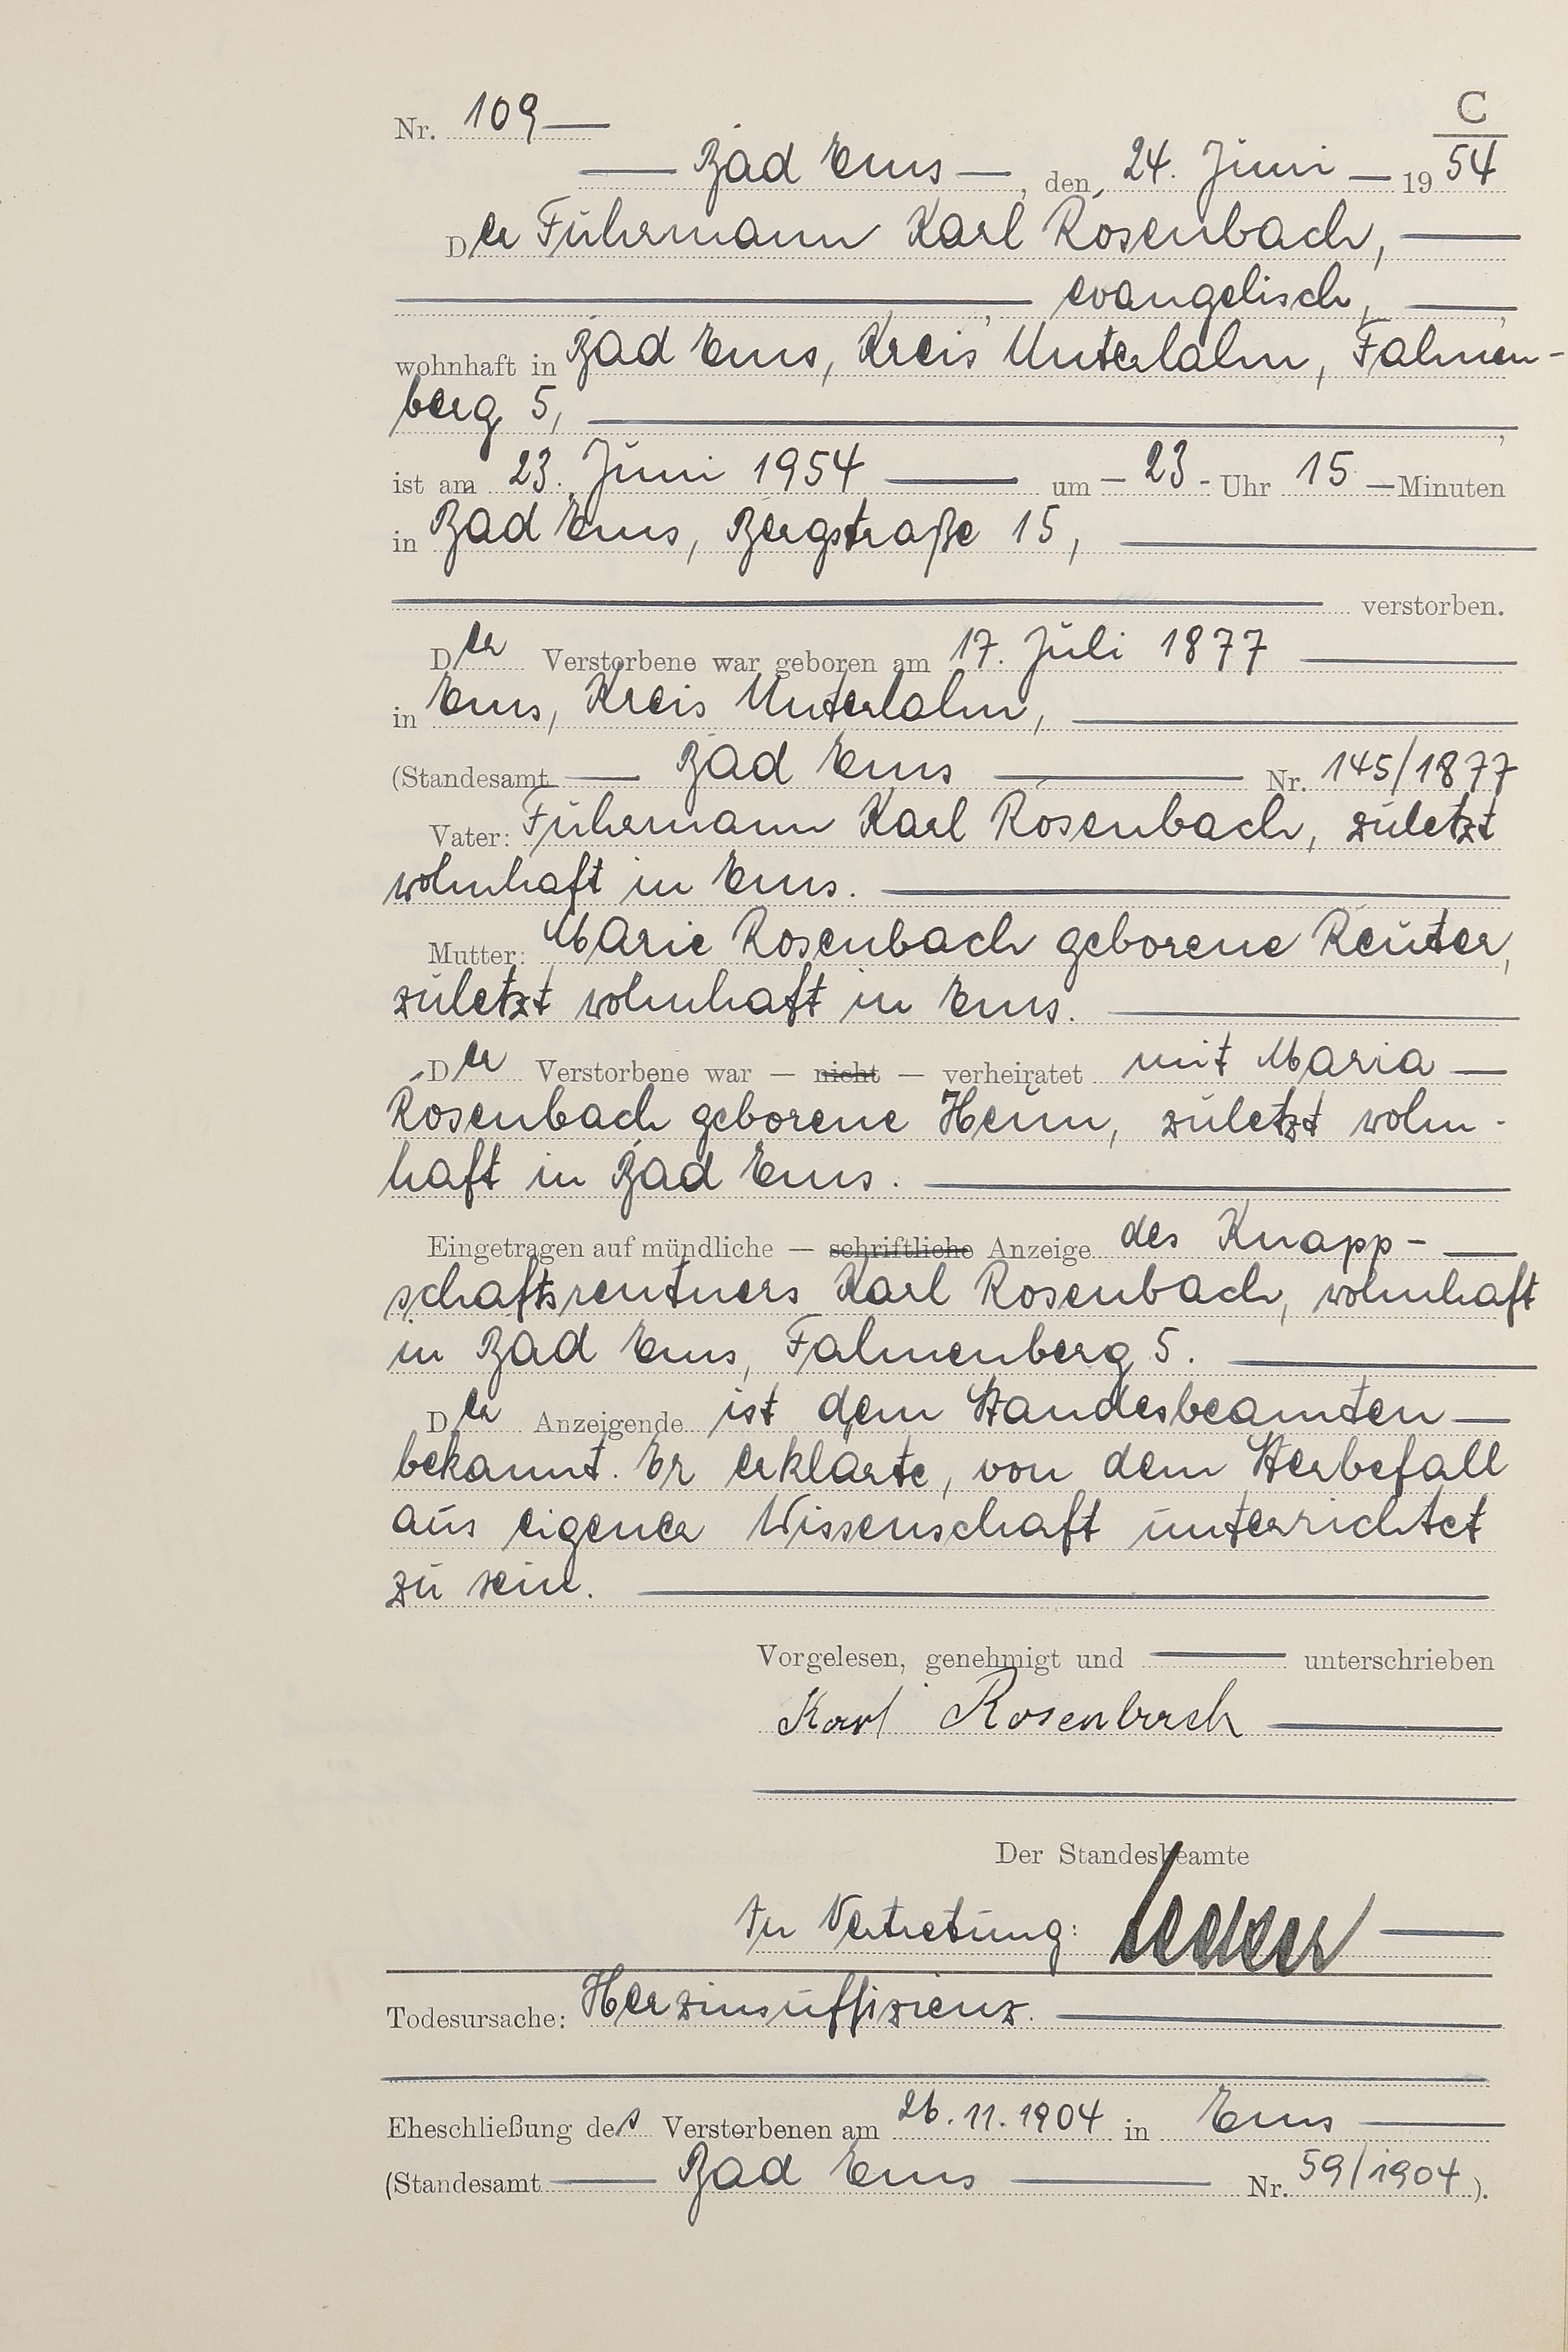 Nr. 109 —
C
— Bad Ems —, den 24. Juni — 19 54
Der Fuhrmann Karl Rosenbach, —
— evangelisch, —,
wohnhaft in Bad Ems, Kreis Unterlahn, Fahnen-
berg 5, —,
ist am 23. Juni 1954 — um — 23 - Uhr 15 — Minuten
in Bad Ems, Bergstraße 15, —
— verstorben.
Der Verstorbene war geboren am 17. Juli 1877 —
in Ems, Kreis Unterlahn, —
(Standesamt — Bad Ems — Nr. 145/1877
Vater: Fuhrmann Karl Rosenbach, zuletzt
wohnhaft in Ems. —
Mutter: Marie Rosenbach geborene Reuter,
zuletzt wohnhaft in Ems. —
Der Verstorbene war — nicht — verheiratet mit Maria —
Rosenbach geborene Heun, zuletzt wohn-
haft in Bad Ems. —
Eingetragen auf mündliche — schriftliche Anzeige des Knapp- —
schaftsrentners Karl Rosenbach, wohnhaft
in Bad Ems, Fahnenberg 5. —
Der Anzeigende ist dem Standesbeamten —
bekannt. Er erklärte, von dem Sterbefall
aus eigener Wissenschaft unterrichtet
zu sein. —
Vorgelesen, genehmigt und — unterschrieben
Karl Rosenbach —
Der Standesbeamte
In Vertretung: —
Todesursache: Herzinsuffizienz. —
Eheschließung des Verstorbenen am 26.11.1904 in Ems —
(Standesamt — Bad Ems — Nr. 59/1904).